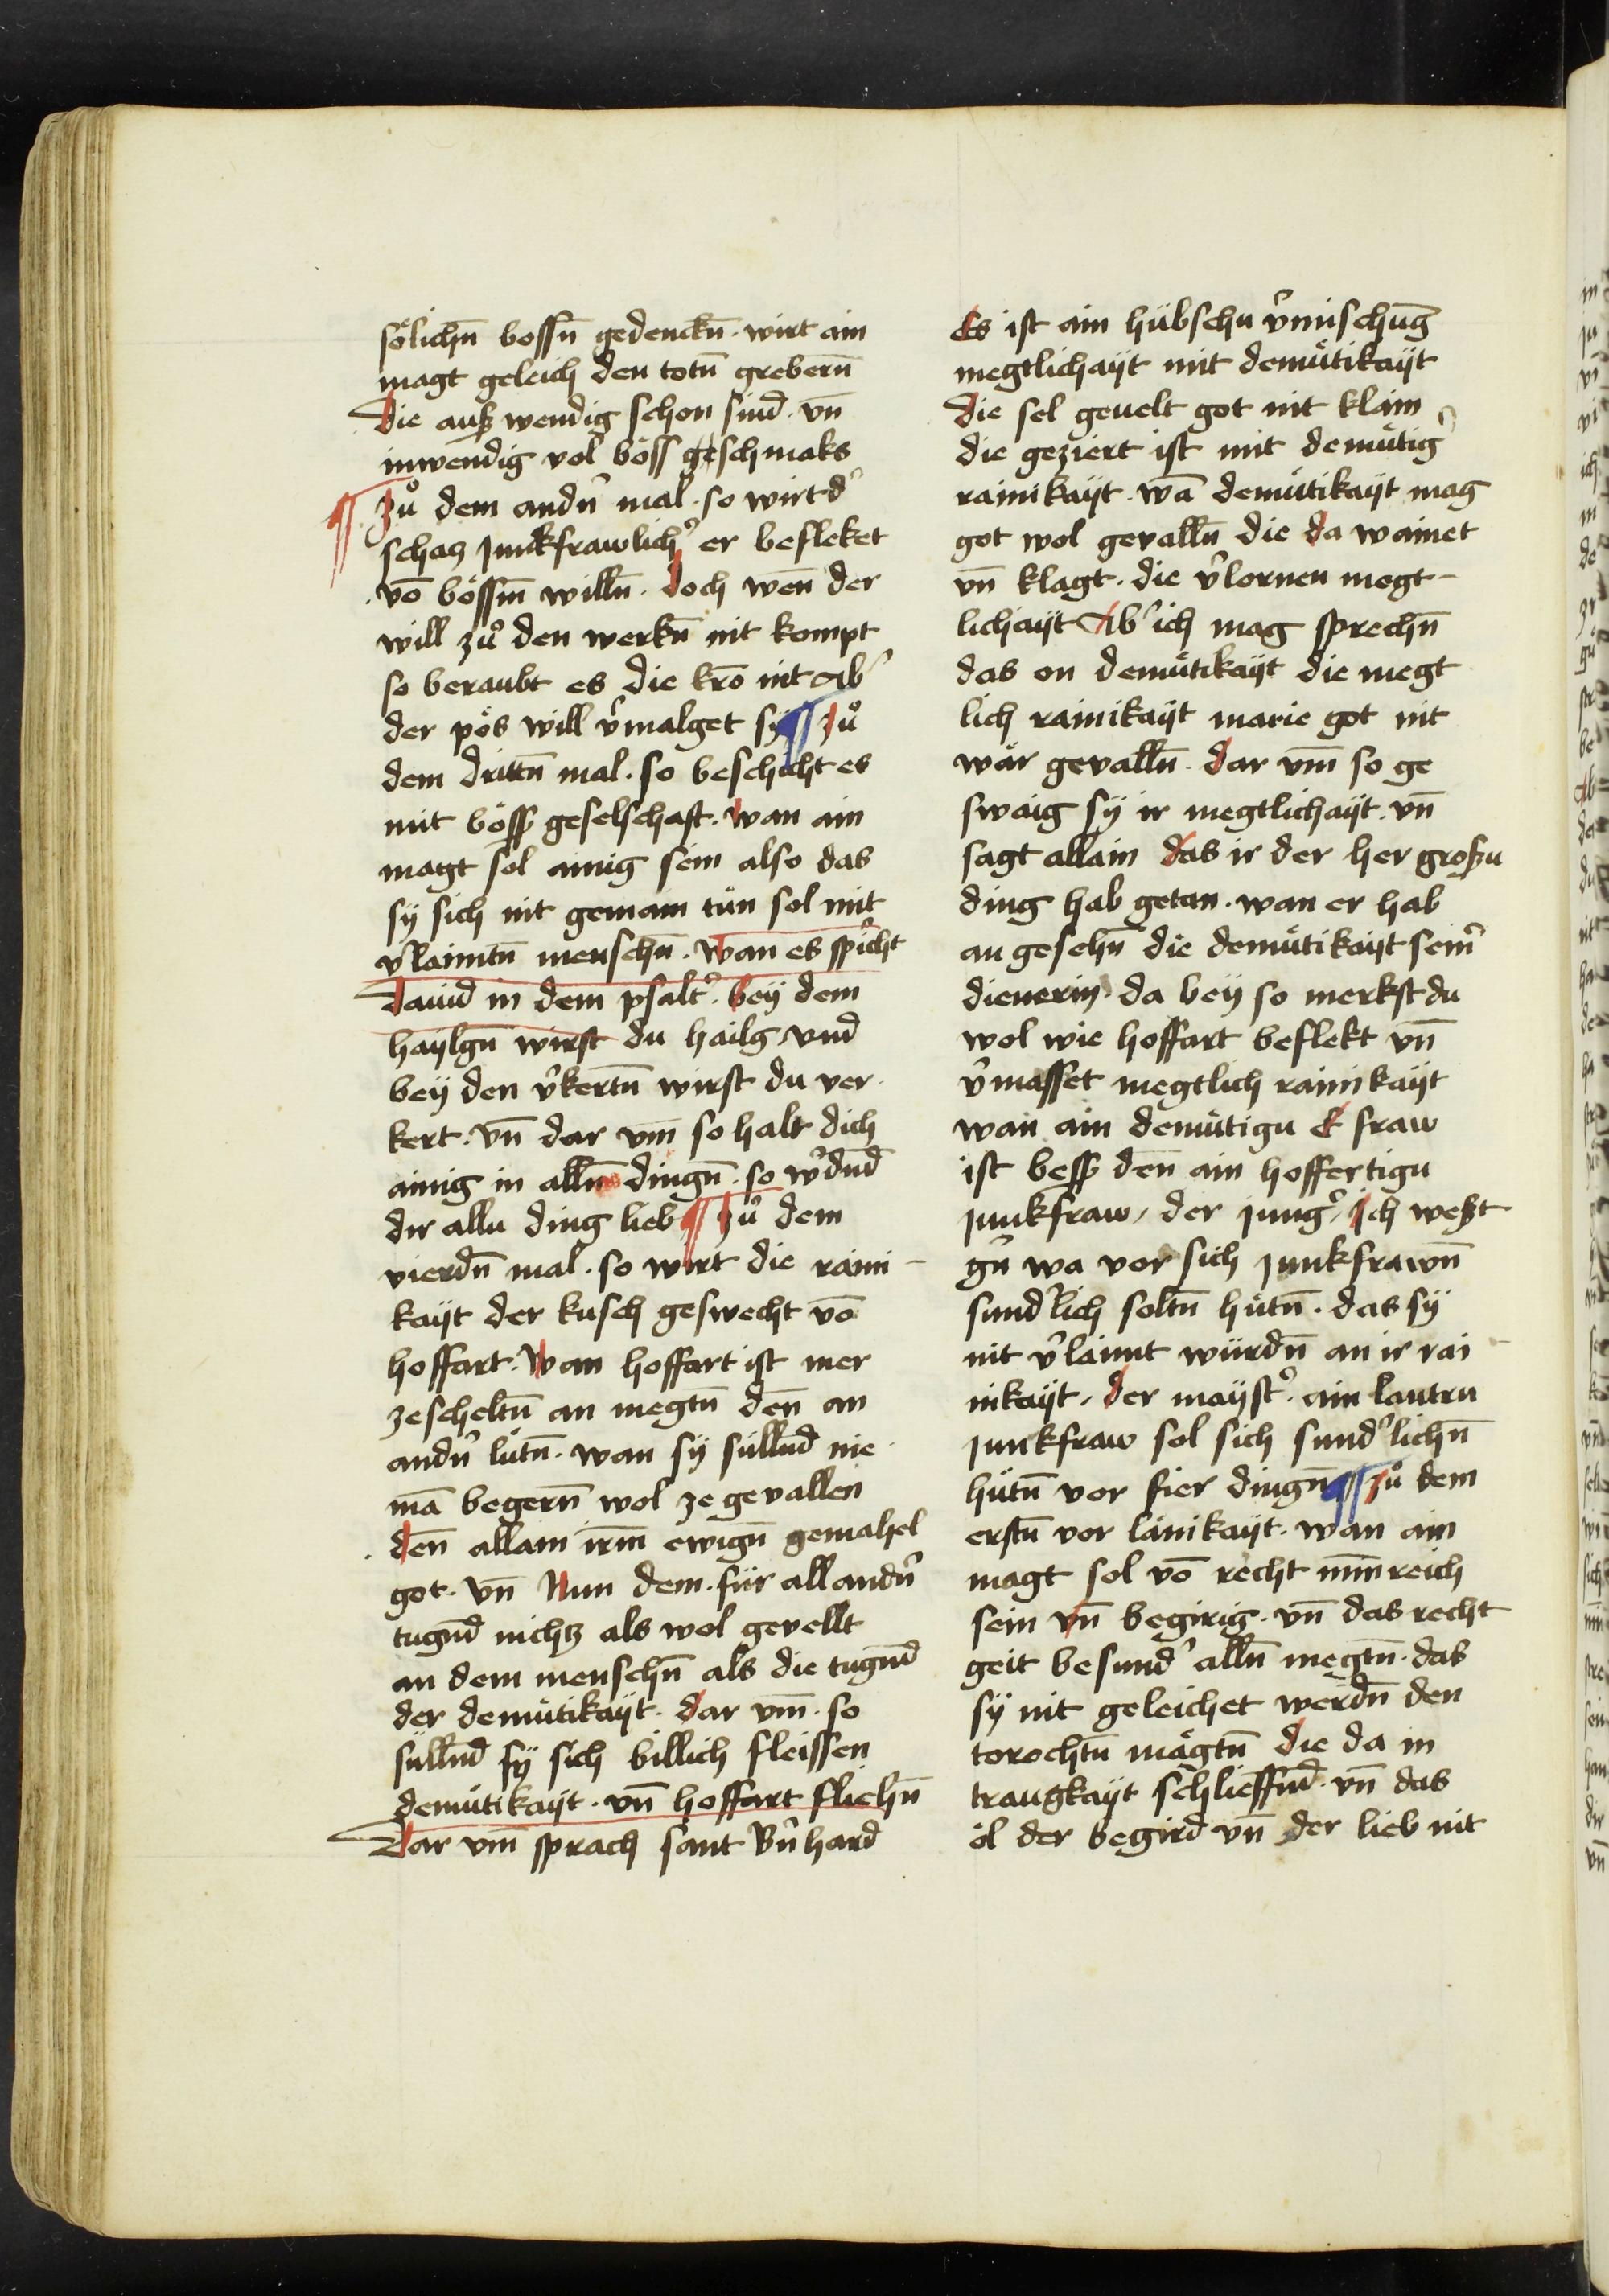 sölichn̄ bossn̄ gedenckn̄ · wirt ain
magt geleich den totn̄ grebern̄
die ausz wendig schon sind · vn̄
inwendig vol böss geschmaks
¶ zů dem andn̄ mal · so wirt d᾽
schatz junckfrawlich᾽ er befleket
vō bössm̄ willn̄ · doch wen̄ der
will zů den werkn̄ nit kompt
so beraubt es die krō nit Ab᾽
der pös will v᾽malget sÿ ¶ zů
dem drittn̄ mal · so beschicht es
mit böss᾽ geselschaft · wan ain
magt sol ainig sein also das
sÿ sich nit gemain tün sol mit
v᾽laimtn̄ menschn̄ · wan es spricht
dauid in dem psalt᾽ · beÿ dem
haÿlgn̄ wirst du hailg vnd
beÿ den v᾽kertn̄ wirst du ver
kert · vn̄ dar vm̄ so halt dich
ainig in alln̄ dingn̄ · so w᾽dnd̄
dir allu ding lieb ¶ zů dem
vierdn̄ mal · so wirt die raini
kaÿt der kusch geswecht vō
hoffart · wan hoffart ist mer
zescheltn̄ an megtn̄ den̄ an
andn̄ lütn̄ · wan sÿ sullnd̄ nie
mā begern̄ wol ze gevallen
den̄ allain irm̄ ewign̄ gemahel
got · vn̄ Nun dem · für all andn̄᾽
tugnd̄ nichtz als wol gevellt
an dem menschn̄ als die tugnd̄
der demütikaÿt · dar vm̄ · so
sullnd̄ sÿ sich billich fleissen
demütikaÿt · vn̄ hoffart fliehn̄
Dar vm̄ sprach sant Bn̄hard
Es ist ain hübschu v᾽mischūg
megtlichaÿt mit demütikaÿt
die sel geuelt got nit klain
die geziert ist mit demütig᾽
rainikaÿt · wā demütikaÿt mag
got wol gevalln̄ die da wainet
vn̄ klagt · die v᾽lornen megt-
lichaÿt Ab᾽ ich mag sprechn̄
das on demütikaÿt die megt
lich rainikaÿt marie got nit
wär gevalln̄ · dar vm̄ so ge
swaig sÿ ir megtlichaÿt · vn̄
sagt allain das ir der her groszu
ding hab getan · wan er hab
an gesehn̄ die demütikaÿt sein᾽
dienerin · da beÿ so merkst du
wol wie hoffart beflekt vn̄
v᾽masset megtlich rainikaÿt
wan ain demütigu E fraw
ist bess᾽ den̄ ain hoffertigu
junkfraw / der jung᾽ / ich weszt
gn̄ wa vor sich junkfrawn̄
sund᾽lich soltn̄ hütn̄ · das sÿ
nit v᾽laimt würdn̄ an ir rai
nikaÿt / der maÿst᾽ · ain lautru
junkfraw sol sich sund᾽lichn̄
hütn̄ vor fier dingn̄ ¶ zů dem
erstn̄ vor länikaÿt · wan ain
magt sol vō recht reich
sein vn̄ begirig · vn̄ das recht
geit besund᾽ alln̄ megtn̄ · das
sÿ nit geleichet werdn̄ den
torochtn̄ mägtn̄ die da in
traugkaÿt schlieffnd̄ · vn̄ das
öl der begird vn̄ der lieb nit